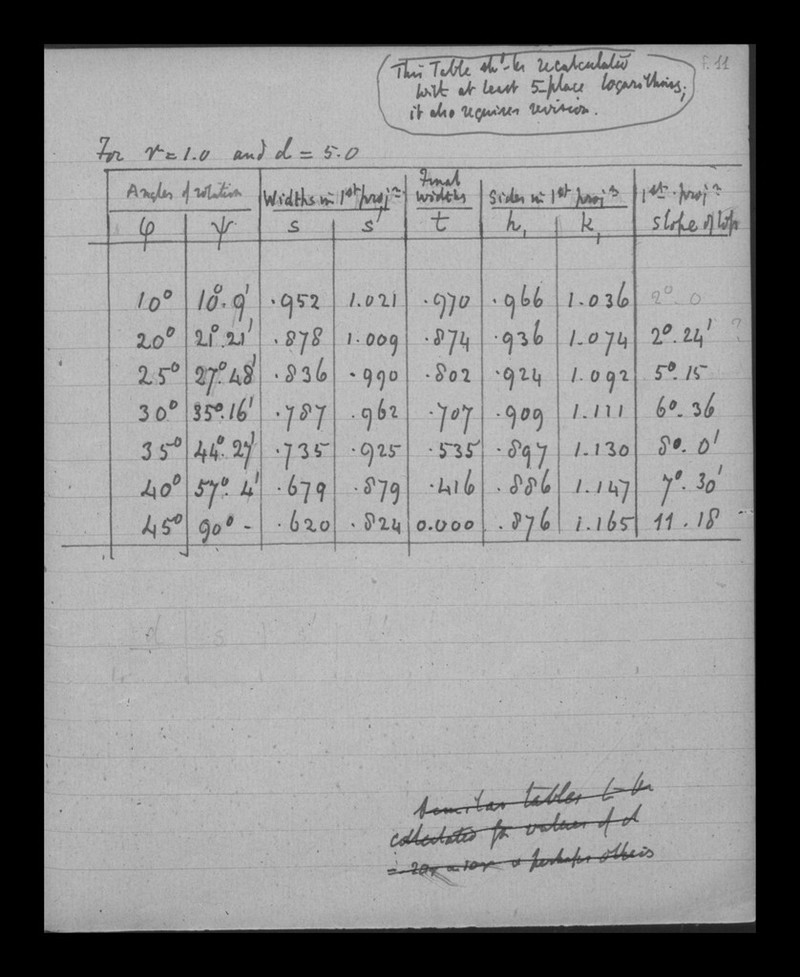 This Table shd be recalculated
with at least 5-place logarithms;
it also requires revision.
F. 11
For r = 1.0 and d = 5.0
Angles of rotation Widths in 1st projn Final widths Sides in 1st projns 1st projn
φ ψ s s' t h, k, slope of top
10° 10°.9' .952 1.021 .970 .966 1.036 2°.0
20° 21°.21' .878 1.009 .874 .936 1.074 2°.24' ?
25° 27°.48' .836 .990 .802 .924 1.092 5°.15
30° 35°.16' .787 .962 .707 .909 1.111 6°.36
35° 44°.27' .735 .925 .535 .897 1.130 8°.0'
40° 57°.4' .679 .879 .416 .886 1.147 7°.30'
45° 90°- .620 .824 0.000 .876 1.165 11.18
d s
Similar tables to be
calculated for values of d
= 20r or 10r & perhaps others